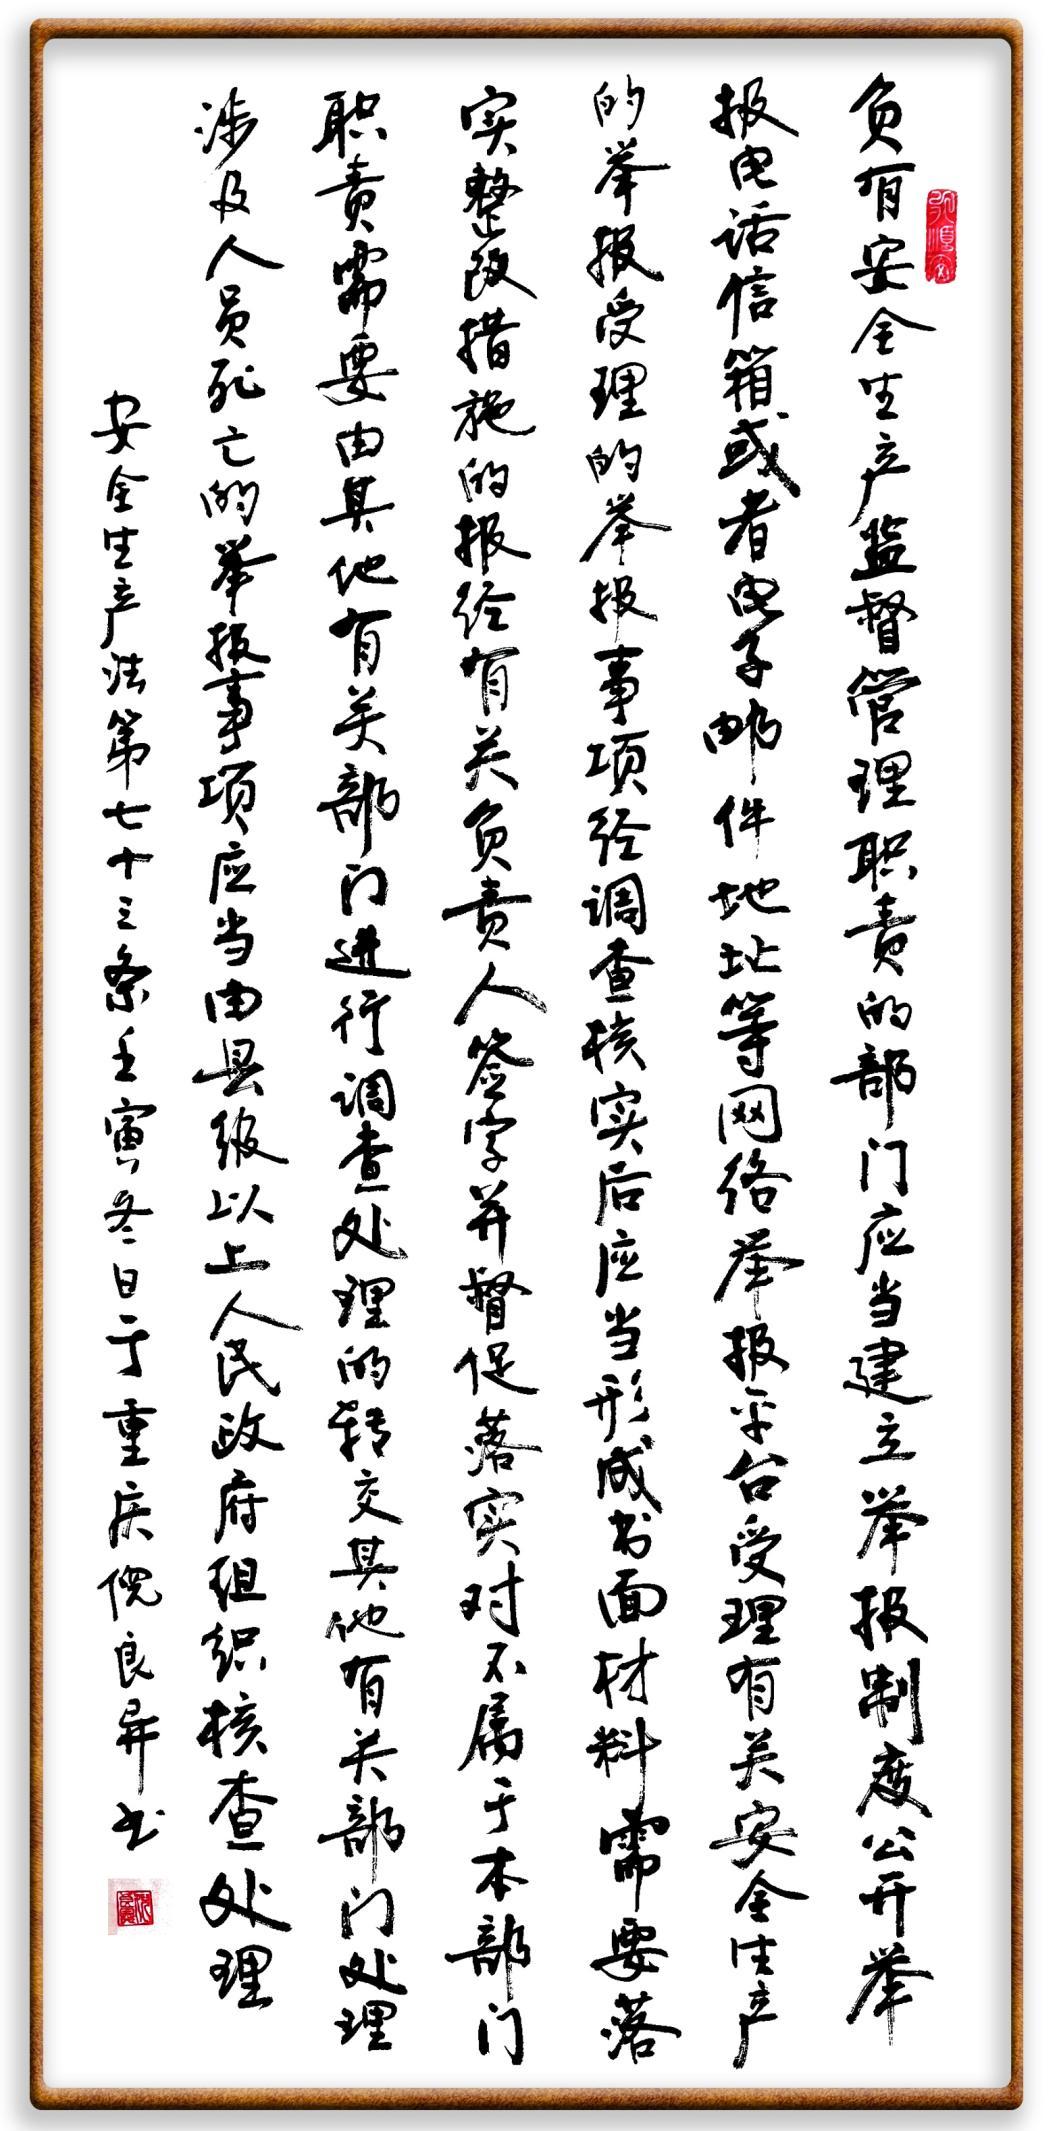 负有安全生产监督管理职责的部门应当建立举报制度公开举
报电话信箱或者电子邮件地址等网络举报平台受理有关安全生产
的举报受理的举报事项经调查核实后应当形成书面材料需要落
实整改措施的报经有关负责人签字并督促落实对不属于本部门
职责需要由其他有关部门进行调查处理的转交其他有关部门处理
涉及人员死亡的举报事项应当由县级以上人民政府组织核查处理
安全生产法第七十三条壬寅冬日于重庆倪良异书